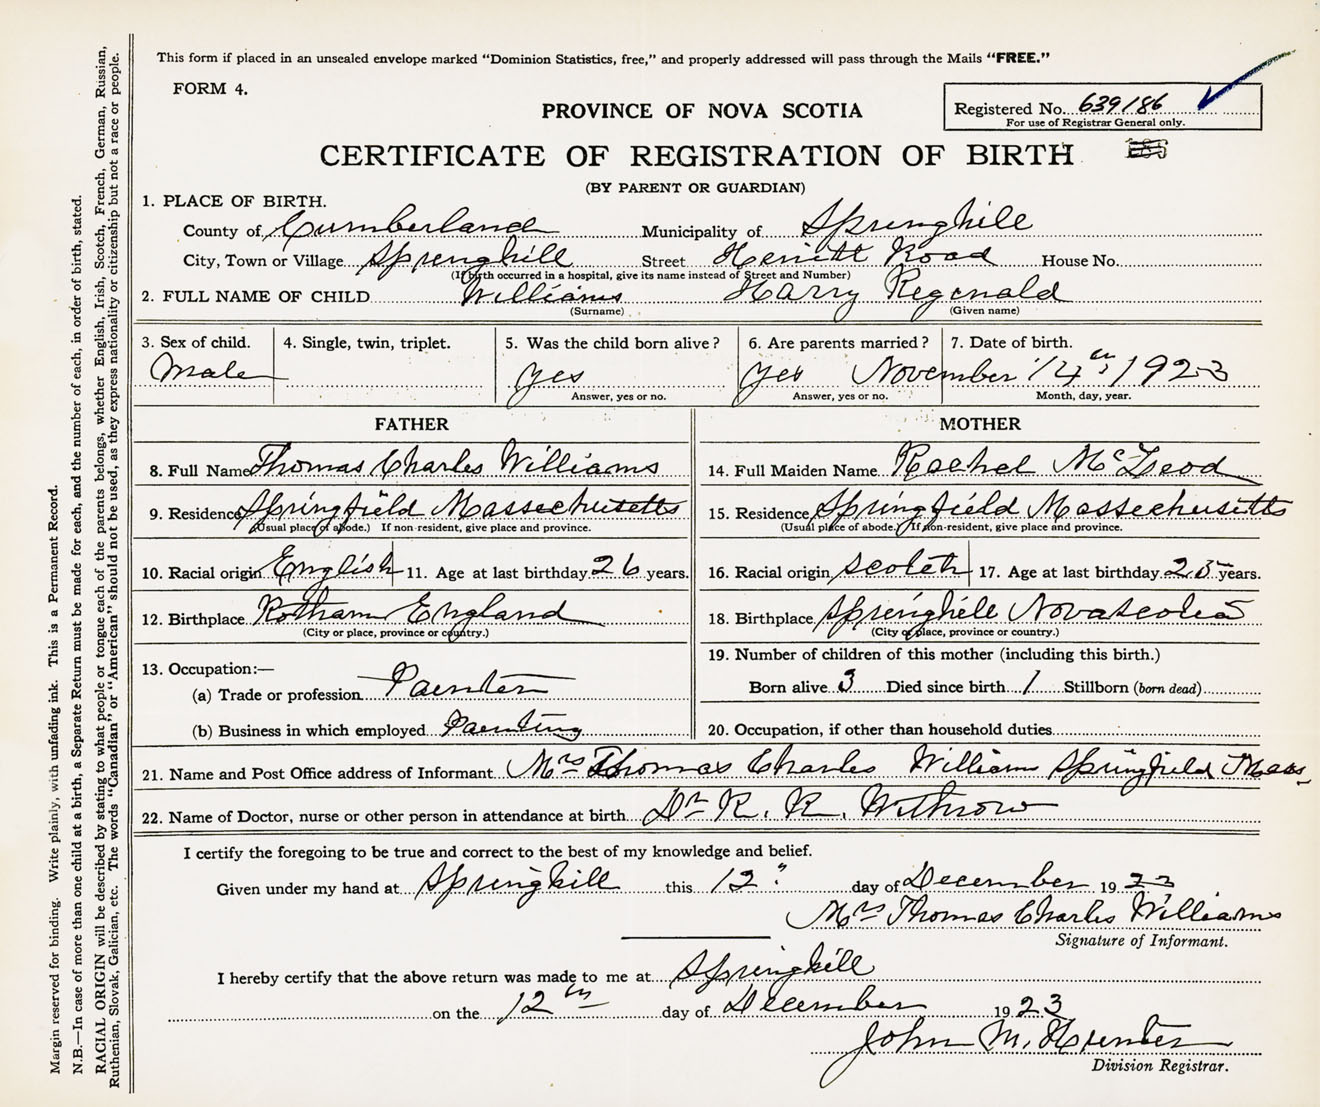 This form if placed in an unsealed envelope marked "Dominion Statistics, free," and properly addressed will pass through the Mails "FREE."
FORM 4.
Registered No. 639186
For use of Registrar General only.
PROVINCE OF NOVA SCOTIA
CERTIFICATE OF REGISTRATION OF BIRTH
(BY PARENT OR GUARDIAN)
1. PLACE OF BIRTH.
County of Cumberland Municipality of Springhill
City, Town or Village Springhill Street Herritt Road House No.
(If birth occurred in a hospital, give its name instead of Street and Number)
2. FULL NAME OF CHILD Williams Harry Regenald
(Surname) (Given name)
3. Sex of child. 4. Single, twin, triplet. 5. Was the child born alive? 6. Are parents married? 7. Date of birth.
Male yes yes November 14th 1923
Answer, yes or no. Answer, yes or no. Month, day, year.
FATHER MOTHER
8. Full Name Thomas Charles Williams 14. Full Maiden Name Rachel McLeod
9. Residence Springfield Massechusetts 15. Residence Springfield Massechusetts
(Usual place of abode.) If non-resident, give place and province. (Usual place of abode.) If non-resident, give place and province.
10. Racial origin English 11. Age at last birthday 26 years. 16. Racial origin Scotch 17. Age at last birthday 23 years.
12. Birthplace Rotham England 18. Birthplace Springhill Nova Scotia
(City or place, province or country.) (City or place, province or country.)
13. Occupation:— 19. Number of children of this mother (including this birth.)
(a) Trade or profession Painter Born alive 3 Died since birth 1 Stillborn (born dead)
(b) Business in which employed Painting 20. Occupation, if other than household duties
21. Name and Post Office address of Informant Mrs Thomas Charles Williams Springfield Mass,
22. Name of Doctor, nurse or other person in attendance at birth Dr R. R. Withrow
I certify the foregoing to be true and correct to the best of my knowledge and belief.
Given under my hand at Springhill this 12 " day of December 19 23
Mrs Thomas Charles Williams
Signature of Informant.
I hereby certify that the above return was made to me at Springhill
on the 12th day of December 19 23
John M. Hunter
Division Registrar.
Margin reserved for binding. Write plainly, with unfading ink. This is a Permanent Record.
N.B.—In case of more than one child at a birth, a Separate Return must be made for each, and the number of each, in order of birth, stated.
RACIAL ORIGIN will be described by stating to what people or tongue each of the parents belongs, whether English, Irish, Scotch, French, German, Russian,
Ruthenian, Slovak, Galician, etc. The words "Canadian" or "American" should not be used, as they express nationality or citizenship but not a race or people.